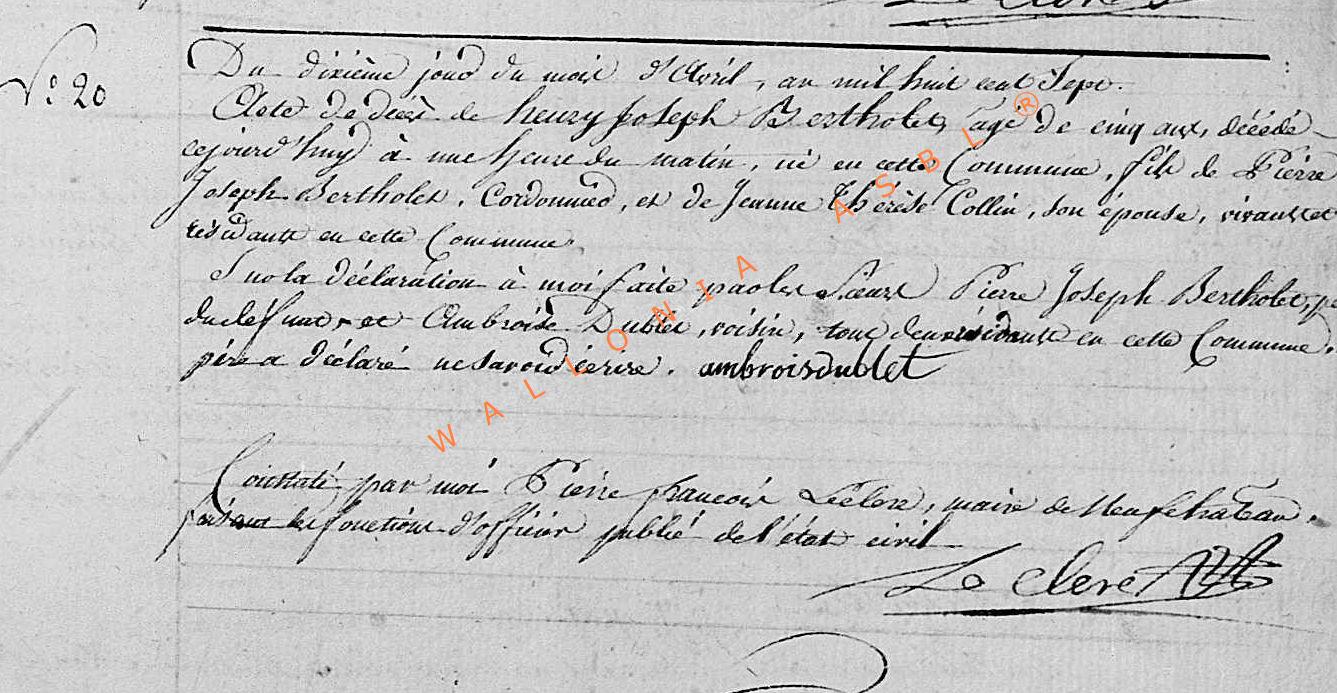 Le Clerc
N.º 20
Du dixième jour du mois d'Avril, an mil huit cent Sept.
Acte de décès de henry joseph Bertholet, agé de cinq ans, décédé
cejourd'huy à une heure du matin, né en cette Commune, fils de Pierre
Joseph Bertholet, Cordonnier, et de Jeanne Thérèse Collin, son épouse, vivants et
résidants en cette Commune.
Sur la déclaration à moi faite par les Sieurs Pierre Joseph Bertholet, p
du défunt, et Ambroise Dublet, voisin, tous deux résidants en cette Commune.
père a déclaré ne savoir écrire. ambroisdublet
Constaté par moi Pierre françois Leclerc, maire de Neufchateau.
faisant les fonctions d'officier public de l'état civil
Le Clerc
WALLONIA ASBL ®